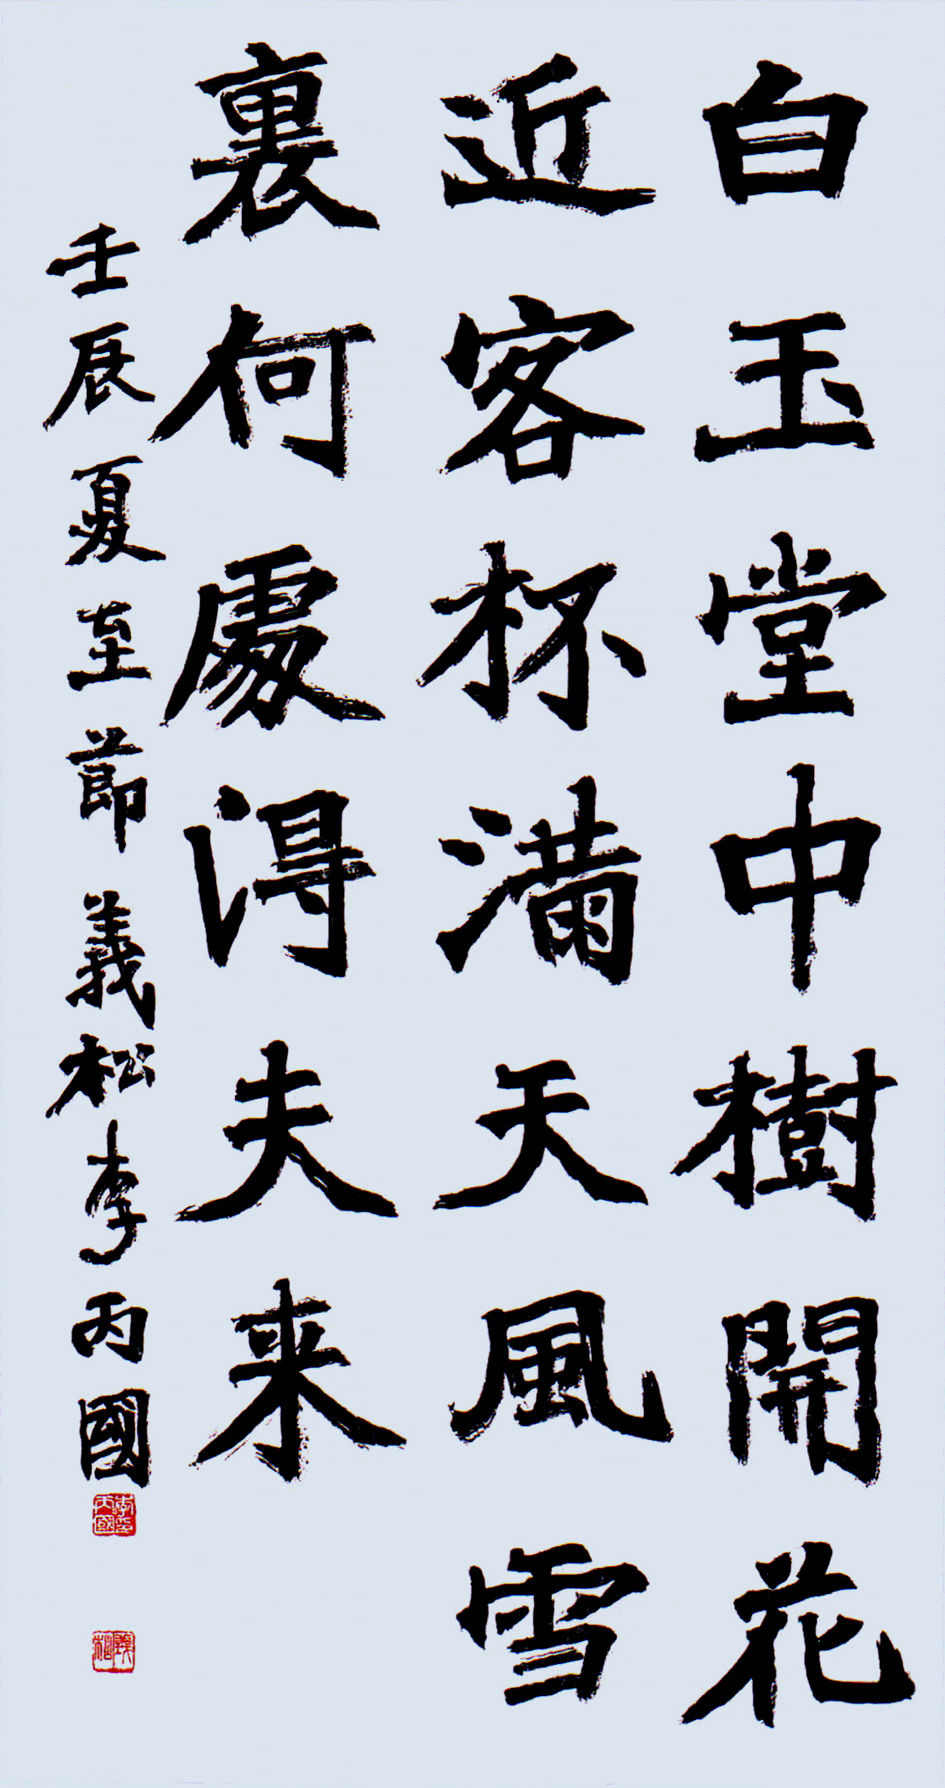 白玉堂中樹開花
近客杯满天風雪
裏何處淂夫来
壬辰夏至節義松李丙國
李丙國印
義松